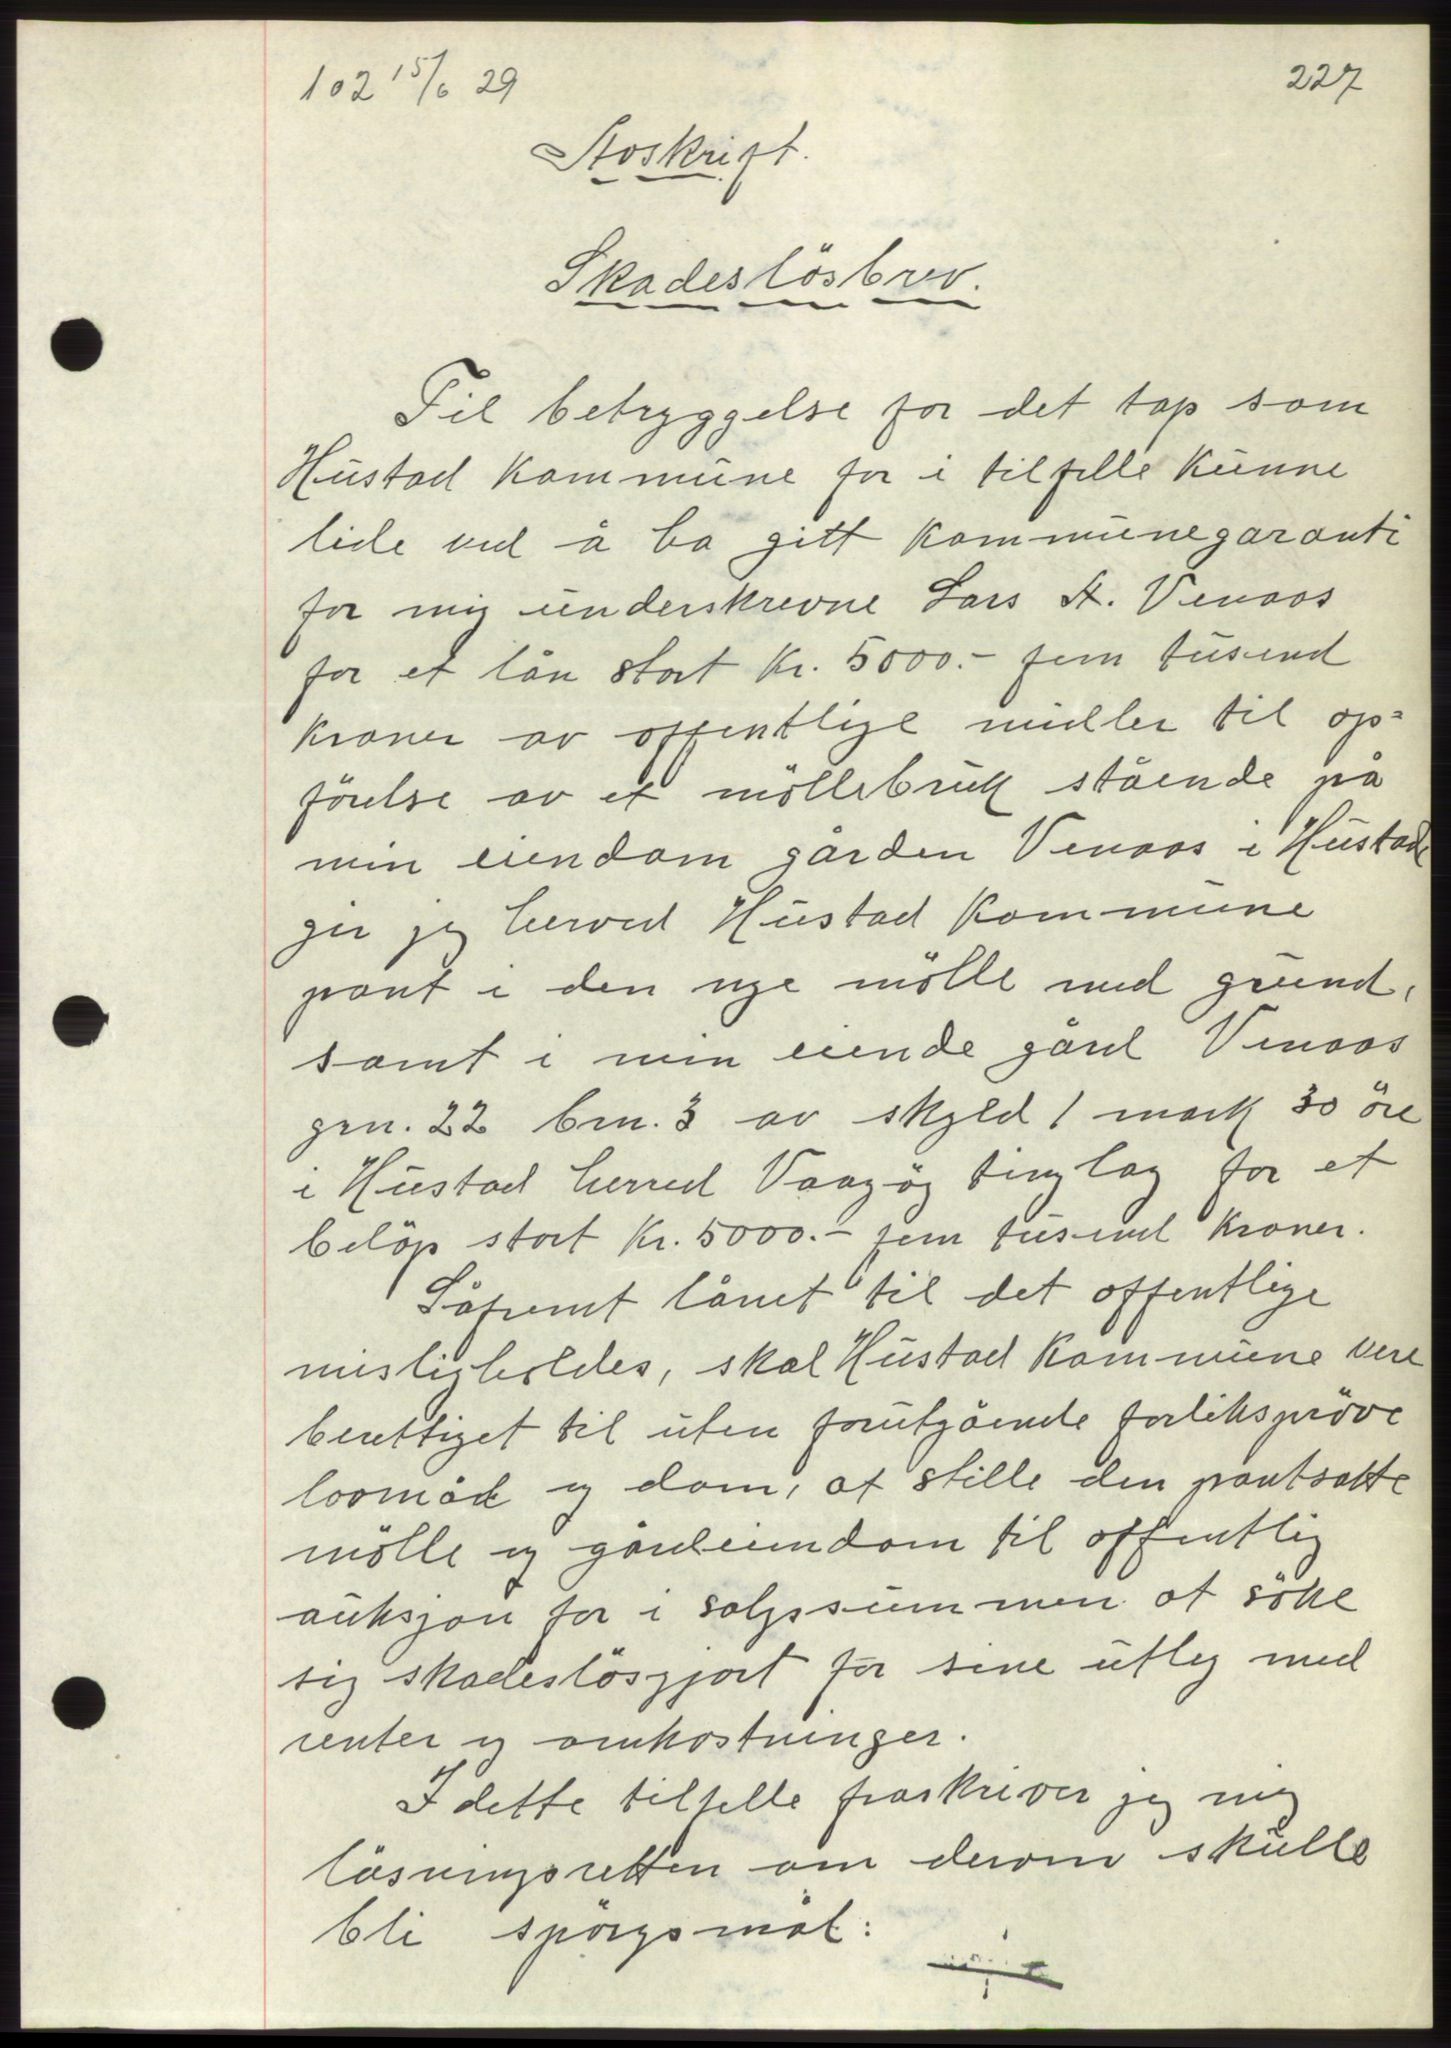 102 15/6 29
227
Avskrift.
Skadeslösbrev.
Til betryggelse for det tap som
Hustad kommune for i tilfelle kunne
lide ved å ha gitt kommunegaranti
for mig underskrevne Lars A. Venaas
for et lån stort kr. 5000.- fem tusend
kroner av offentlige midler til op=
förelse av et möllebruk stående på
min eiendom gården Venaas i Hustad
gir jeg herved Hustad kommune
pant i den nye mölle med grund,
samt i min eiende gård Venaas
grn. 22 brn. 3 av skyld 1 mark 30 öre
i Hustad herred Vaagöy tinglag for et
belöp stort kr. 5000.- fem tusend kroner.
Såfremt lånet til det offentlige
misligholdes, skal Hustad kommune vere
berettiget til uten forutgående forlikspröve
lovmål og dom, at stille den pantsatte
mölle og gårdeiendom til offentlig
auksjon for i salgssummen at söke
sig skadeslösgjort for sine utleg med
renter og omkostninger.
I dette tilfelle fraskriver jeg mig
lösningsretten om derom skulle
bli spörgsmål: